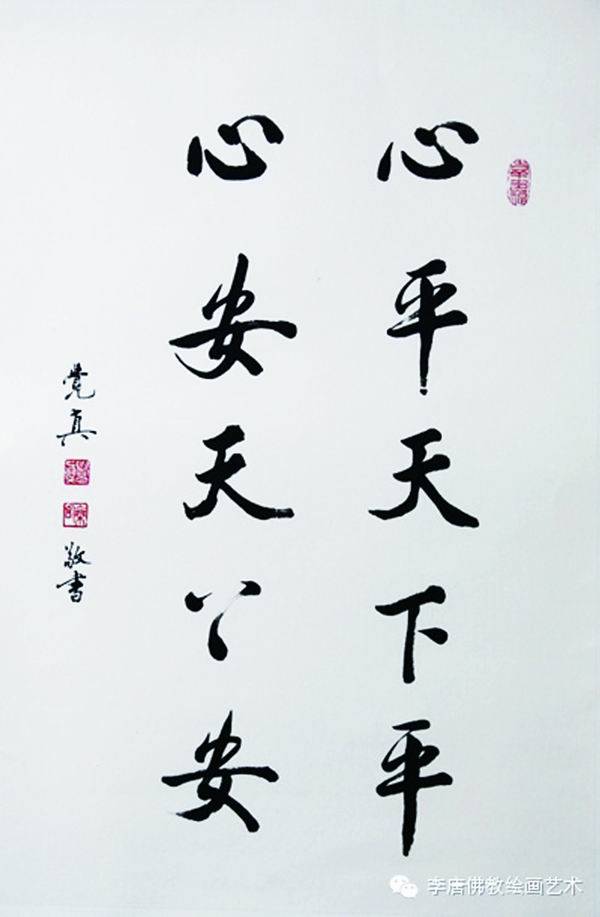 心平天下平
心安天下安
覺真
敬書
李唐佛教绘画艺术